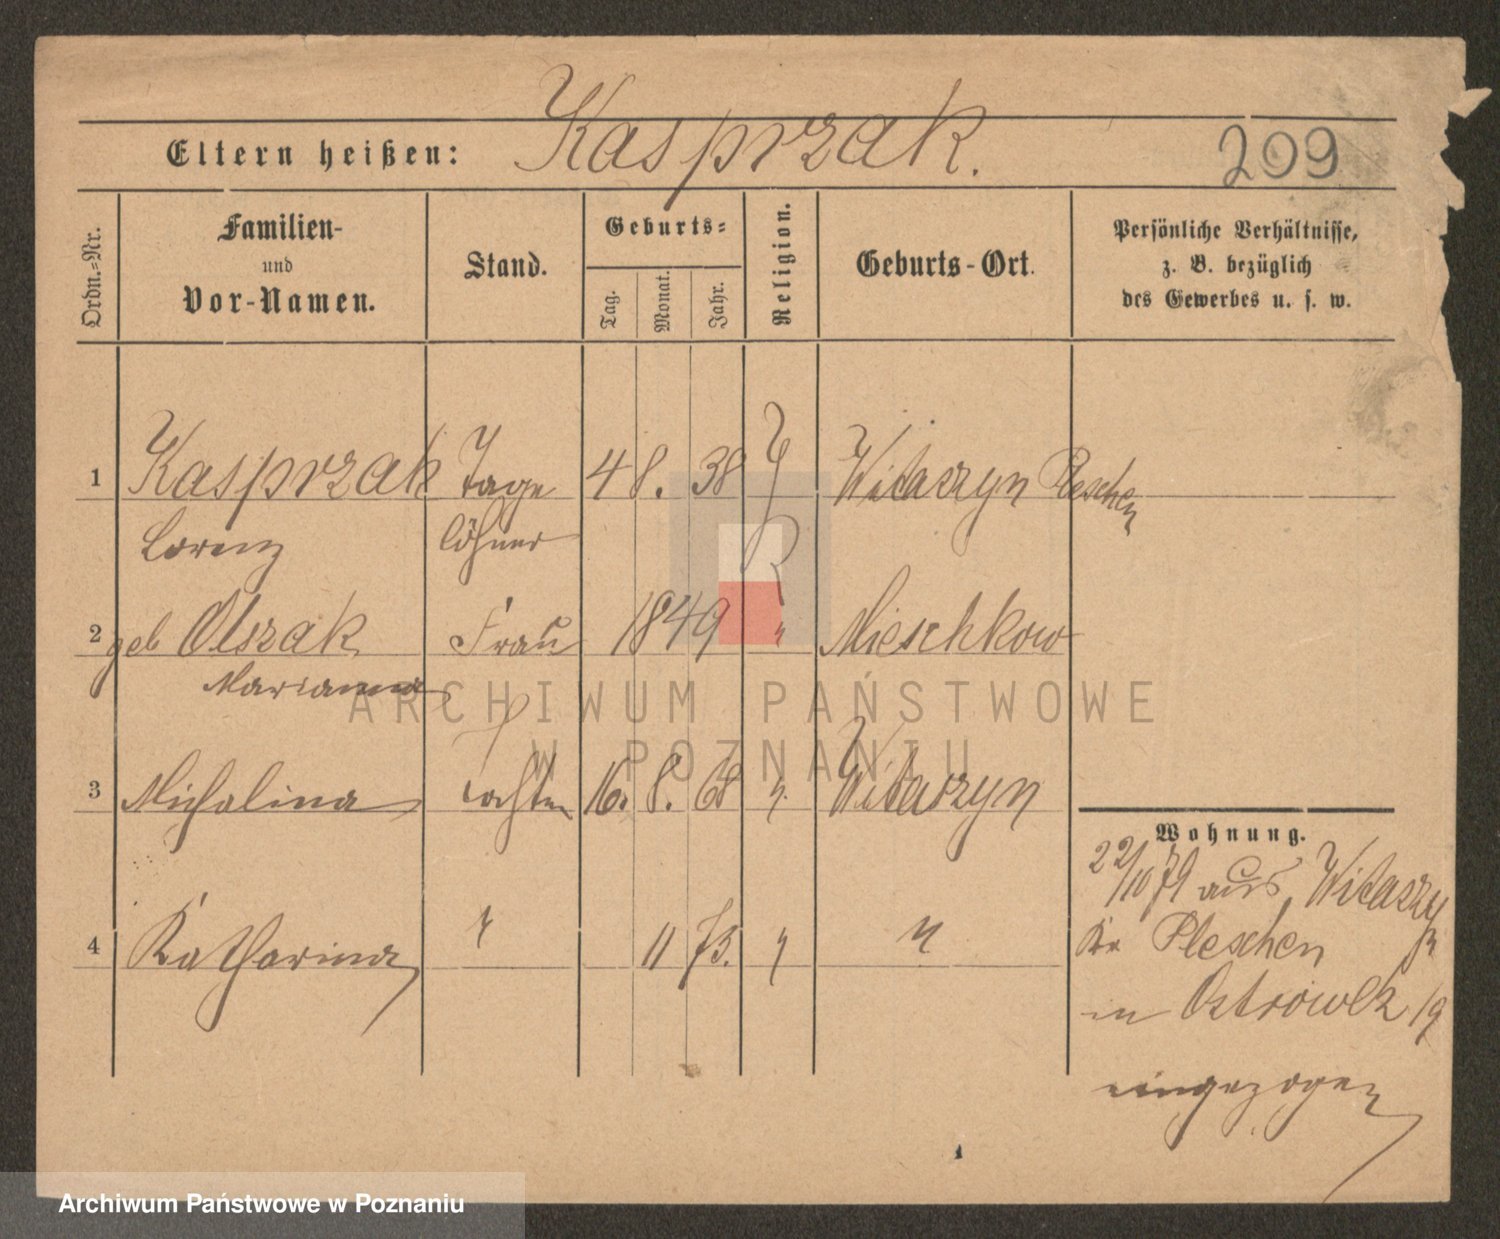 Eltern heißen: Kasprzak. 209
Ordn.=Nr.
Familien-
und
Vor-Namen.
Stand.
Geburts=
Tag.
Monat.
Jahr.
Religion.
Geburts-Ort.
Persönliche Verhältnisse,
z. B. bezüglich
des Gewerbes u. s. w.
1 Kasprzak Tage 4 8. 38 Witaszyn Pleschen
Lorenz löhner
2 geb Olszak Frau 1849 " Mieschkow
Marianna
3 Michalina Tochter 16. 8. 68 " Witaszyn
4 Katharina " 11 73. " "
Wohnung.
22/10 79 aus Witaszy
Kr Pleschen
in Ostrówek 19
eingezogen
ARCHIWUM PAŃSTWOWE
W POZNANIU
Archiwum Państwowe w Poznaniu